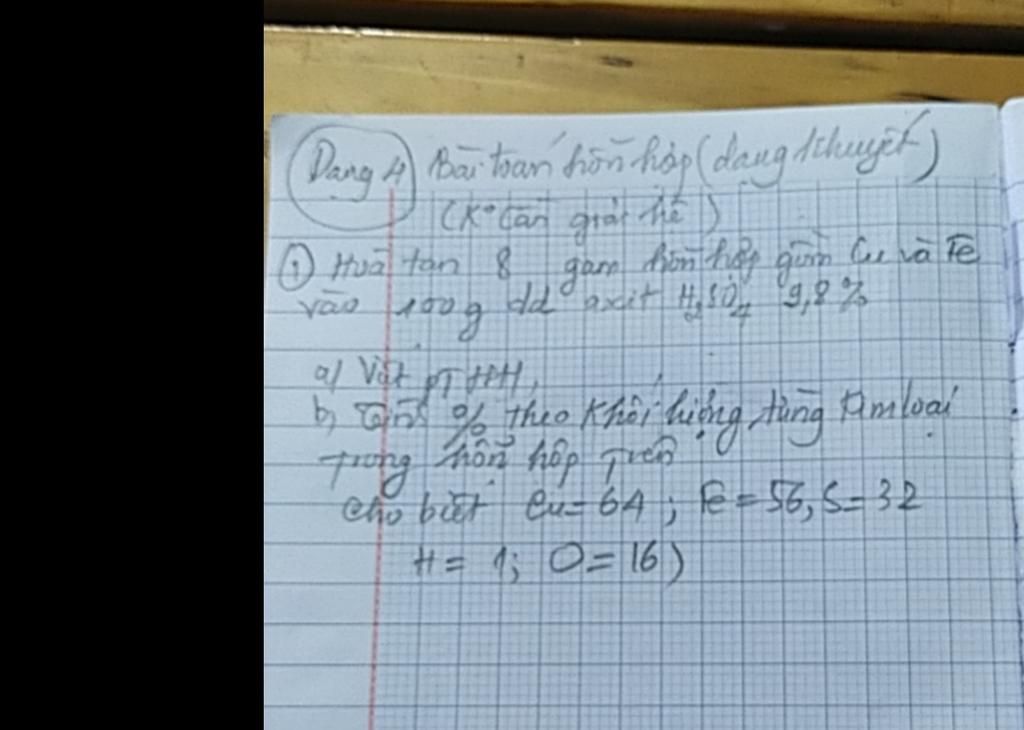 Dạng 4 Bài toán hỗn hợp (dạng khuyết)
(K° cần giải hệ)
① Hoà tan 8 gam hỗn hợp gồm Cu và Fe
vào 100g dd axit H₂SO₄ 9,8%
a) Viết PTHH,
b) Tính % theo khối lượng từng kim loại
trong hỗn hợp trên
Cho biết Cu = 64 ; Fe = 56, S = 32
H = 1; O = 16)